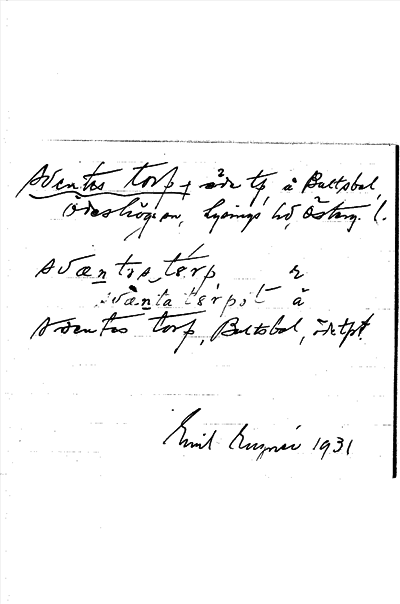 Sventes torp + öde tp å Baltsbol,
Ödeshögs sn, Lysings hd, Österg. l.
svæntəs tɛ́rp r
svæntatɛ́rpət ā
Sventes torp, Baltsbol, ödetpt.
Emil 1931